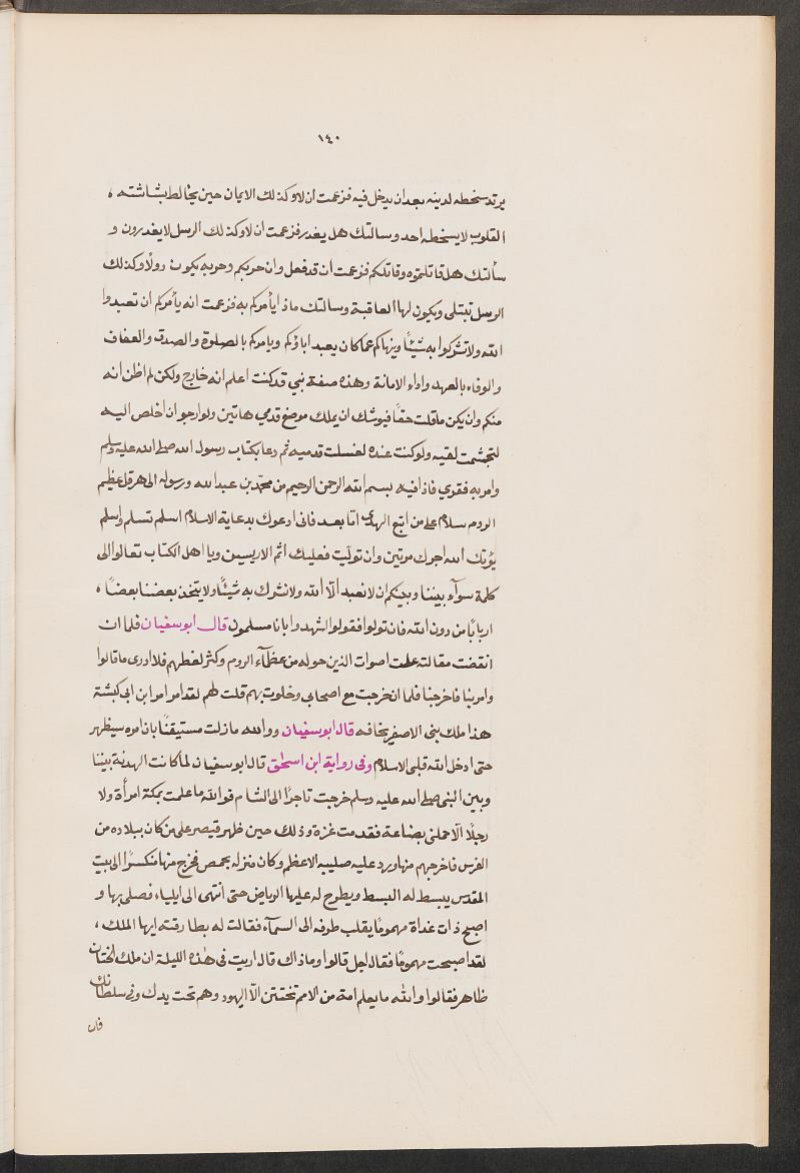 ١٤٠
يرتد سخطه لدينه بعد ان يدخل فيه فزعمت ان لا وكذلك الايمان حين يخالط بشاشته
القلوب لا يسخطه احد وسالتك هل يغدر فزعمت ان لا وكذلك الرسل لا يغدرون و
سألتك هل قاتلتموه وقاتلكم فزعمت ان قد فعل وان حربكم وحربه يكون دولًا وكذلك
الرسل تبتلى ويكون لها العاقبة وسالتك ماذا يأمركم به فزعمت انه يأمركم ان تعبدوا
الله ولا تشركوا به شيئًا وينهاكم عما كان يعبد اباؤكم ويامركم بالصلوة والصدق والعفاف
والوفاء بالعهد واداء الامانة وهذه صفة نبي قد كنت اعلم انه خارج ولكن لم اظن انه
منكم وان يكن ما قلت حقًا فيوشك ان يملك موضع قدمي هاتين ولو ارجو ان اخلص اليه
لتجشمت لقيه ولو كنت عنده لغسلت قدميه ثم دعا بكتاب رسول الله صلى الله عليه وسلم
وامر به فقرئ فاذا فيه بسم الله الرحمن الرحيم من محمد بن عبد الله ورسوله الى هرقل عظيم
الروم سلام على من اتبع الهدى اما بعد فانى ادعوك بدعاية الاسلام اسلم تسلم واسلم
يؤتك الله اجرك مرتين وان توليت فعليك اثم الاريسين ويا اهل الكتاب تعالوا الى
كلمة سوآء بيننا وبينكم ان لا نعبد الّا الله ولا نشرك به شيئًا ولا يتخذ بعضنا بعضًا
اربابًا من دون الله فان تولوا فقولوا اشهدوا بانا مسلمون قال ابو سفيان فلما ان
انقضت مقالته علت اصوات الذين حوله من عظمآء الروم وكثر لغطهم فلا ادرى ما قالوا
وامر بنا فاخرجنا فلما ان خرجت مع اصحابي وخلوت بهم قلت لهم لقد امر امر ابن ابى كبشة
هذا ملك بنى الاصفر يخافه قال ابو سفيان ووالله ما زلت مستيقنًا بان امره سيظهر
حتى ادخل الله قلبى الاسلام وفى رواية ابن اسحق قال ابو سفيان لما كانت الهدنة بيننا
وبين النبى صلى الله عليه وسلم خرجت تاجرًا الى الشام فوالله ما علمت بمكة امرأة ولا
رجلًا الّا حملنى بضاعة فقدمت غزة وذلك حين ظهر قيصر على من كان ببلاده من
الفرس فاخرجهم منها ورد عليه صليبه الاعظم وكان منزله بحمص فخرج منها متكسرًا الى بيت
المقدس يبسط له البسط ويطرح له عليها الرياض حتى انتهى الى ايلياء فصلى بها و
اصبح ذات غداة مهمومًا يقلب طرفه الى السمآء فقالت له بطارقته ايها الملك
لقد اصبحت مهمومًا فقال اجل قالوا وماذاك قال اريت فى هذه الليلة ان ملك الختان
ظاهر فقالوا والله ما يعلم امة من الامم تختتن الّا اليهود وهم تحت يدك وفى سلطانك
فان